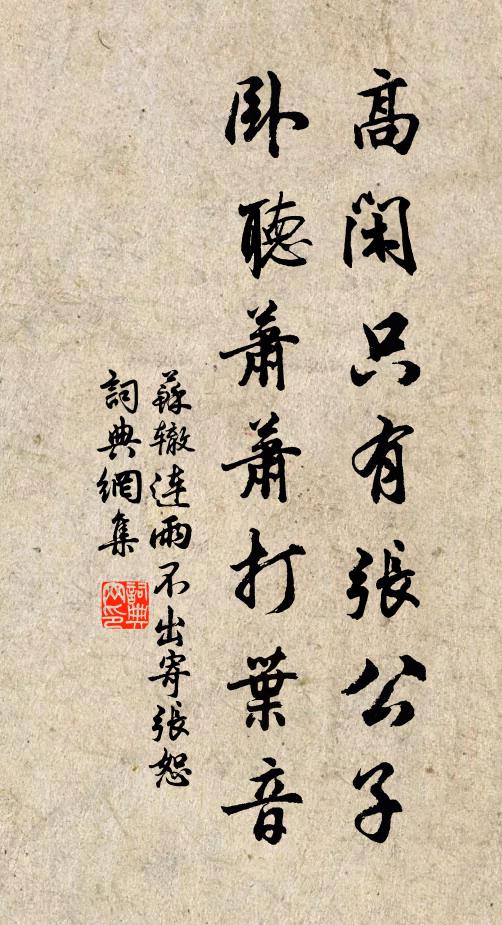 高閑只有張公子
臥聽蕭蕭打葉音
蘇辙連雨不出寄張恕
詞典網集
詞典網印